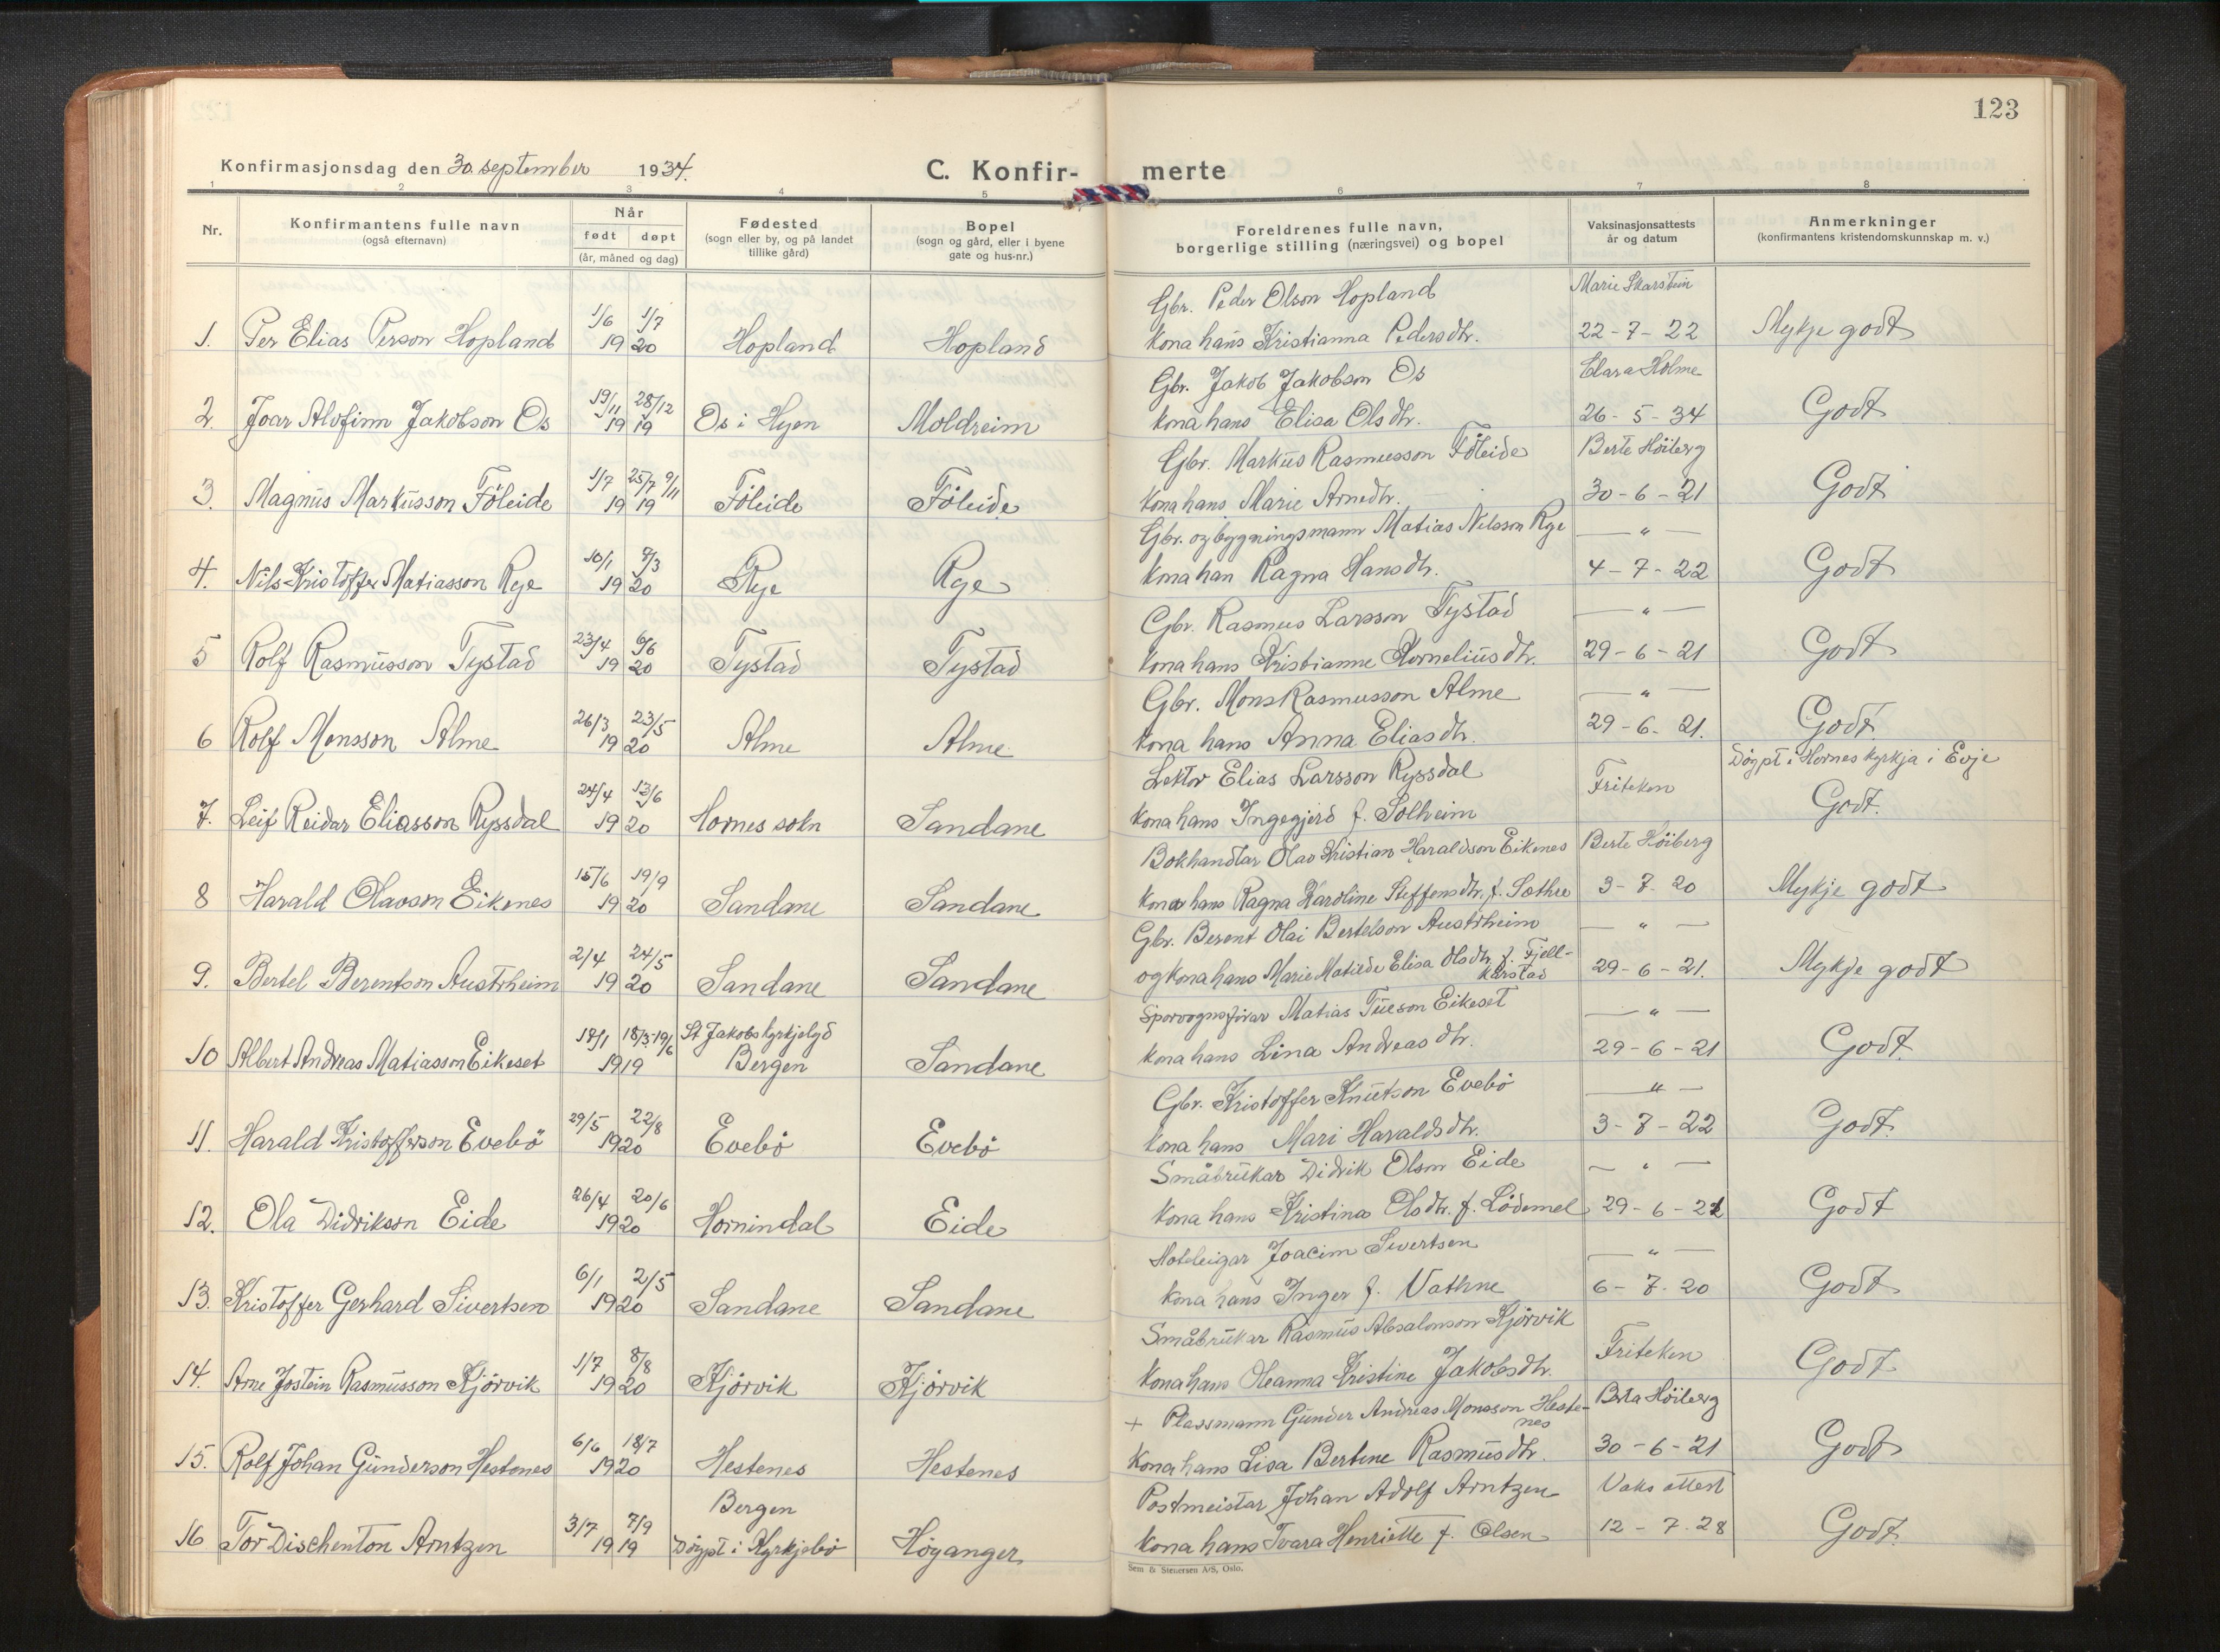 123
Konfirmasjonsdag den 30. september 1934.
C. Konfir-merte
1 2 3 4 5 6 7 8
Nr.
Konfirmantens fulle navn
(også efternavn)
Når
født døpt
(år, måned og dag)
Fødested
(sogn eller by, og på landet
tillike gård)
Bopel
(sogn og gård, eller i byene
gate og hus-nr.)
Foreldrenes fulle navn,
borgerlige stilling (næringsvei) og bopel
Vaksinasjonsattests
år og datum
Anmerkninger
(konfirmantens kristendomskunnskap m. v.)
Gbr. Peder Olson Hopland Marie Skarstein
1/6 1/7
1. Per Elias Person Hopland 19 20 Hopland Hopland kona hans Kristianna Pedersdtr. 22-7-22 Mykje godt
Gbr. Jakob Jakobson Os Clara Holme
19/11 28/12
2. Joar Alofinn Jakobson Os 19 19 Os i Hyen Moldreim kona hans Elisa Olsdtr. 26-5-34 Godt
Gbr. Markus Rasmusson Föleide Berte Höiberg
1/7 25/7 9/11
3. Magnus Markusson Föleide 19 19 Föleide Föleide kona hans Marie Arnedtr. 30-6-21 Godt
Gbr. og bygningsmann Matias Nilsson Rye — " —
10/1 7/3
4. Nils Kristoffer Matiasson Rye 19 20 Rye Rye kona han Ragna Hansdtr. 4-7-22 Godt
Gbr. Rasmus Larsson Tystad — " —
23/4 6/6
5 Rolf Rasmusson Tystad 19 20 Tystad Tystad kona hans Kristianne Korneliusdtr. 29-6-21 Godt
Gbr. Mons Rasmusson Alme — " —
26/3 23/5
6 Rolf Monsson Alme 19 20 Alme Alme kona hans Anna Eliasdtr. 29-6-21. Godt
Lektor Elias Larsson Ryssdal Döypt i Hornes kyrkja i Evje
24/4 13/6 Friteken
7. Leif Reidar Eliasson Ryssdal 19 20 Hornes sokn Sandane kona hans Ingegjerd f. Solheim Godt.
Bokhandlar Olav Kristian Haraldson Eikenes Berte Höiberg
15/6 19/9
8 Harald Olavson Eikenes 19 20 Sandane Sandane kona hans Ragna Karoline Steffensdtr. f. Sæthre 3-7-20 Mykje godt
Gbr. Berent Olai Bertelson Austrheim — " —
2/4 24/5
9. Bertel Berentson Austrheim 19 20 Sandane Sandane og kona hans Marie Matilde Elisa Olsdtr. f. Fjell-
kårstad 29-6-21. Mykje godt
Sporvognsförar Matias Tueson Eikeset — " —
18/3-19/6 St Jakobs kyrkjelyd
10 Albert Andreas Matiasson Eikeset 1919 Bergen Sandane kona hans Lina Andreasdtr. 29-6-21 Godt
Gbr. Kristoffer Knutson Evebö — " —
29/5 22/8
11. Harald Kristofferson Evebö 1920 Evebö Evebö kona hans Mari Haraldsdtr. 3-7-22 Godt
Småbrukar Didrik Olson Eide — " —
26/4 20/6
12. Ola Didrikson Eide 1920 Hornindal Eide kona hans Kristina Olsdtr. f. Lödemel 29-6-21 Godt
Hoteleigar Joacim Sivertsen — " —
6/1 2/5
13. Kristoffer Gerhard Sivertsen 1920 Sandane Sandane kona hans Inger f. Vathne 6-7-20 Godt
Småbrukar Rasmus Absalonson Kjörvik
1/7 8/8 Friteken
14. Arne Jostein Rasmusson Kjörvik 1920 Kjörvik Kjörvik kona hans Oleanna Kristine Jakobsdtr. Godt
+ Plassmann Gunder Andreas Monsson Heste-
nes Berta Höiberg
6/6 18/7
15. Rolf Johan Gunderson Hestenes 1920 Hestenes Hestenes kona hans Lisa Bertine Rasmusdtr. 30-6-21 Godt
Postmeistar Johan Adolf Arntzen Vaks attest
3/7 7/9 Bergen
16 Tor Dischenton Arntzen 1919 Döypt i Kyrkjebö Höyanger kona hans Tvara Henriette f. Olsen 12-7-28 Godt.
Sem & Stenersen A/S, Oslo.